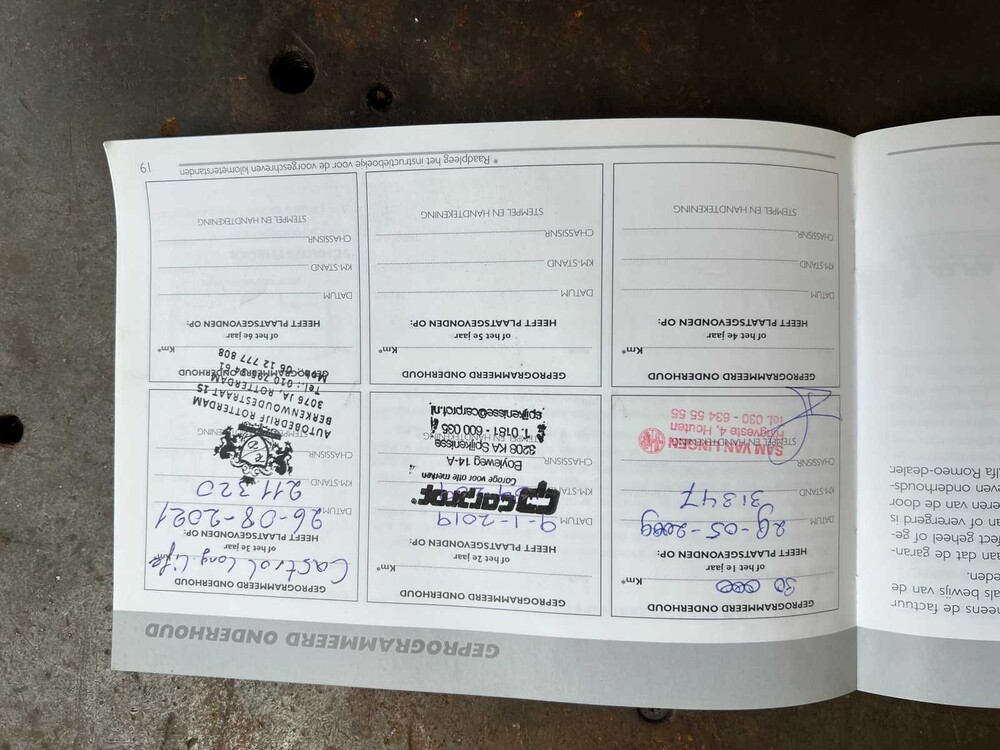 neens de factuur
als bewijs van de
eden.
aan dat de garan-
fect of geheel of ge-
an of verergerd is
eren van de door de
even onderhouds-
lfa Romeo-dealer.
GEPROGRAMMEERD ONDERHOUD
GEPROGRAMMEERD ONDERHOUD
30 000 Km*
of het 1e jaar
HEEFT PLAATSGEVONDEN OP:
DATUM 29-05-2009
KM-STAND 31347
CHASSISNR.
STEMPEL EN HANDTEKENING
SAM VAN LINGEN
Hoogveste 4, Houten
Tel. 030 - 634 55 55
GEPROGRAMMEERD ONDERHOUD
Km*
of het 2e jaar
HEEFT PLAATSGEVONDEN OP:
DATUM 9-1-2019
KM-STAND
carprof
Garage voor alle merken
CHASSISNR.
Boyleweg 14-A
3208 KA Spijkenisse
T. 0181 - 600 035
spijkenisse@carprof.nl
GEPROGRAMMEERD ONDERHOUD
Castrol Long Life Km*
of het 3e jaar
HEEFT PLAATSGEVONDEN OP:
DATUM 26-08-2021
KM-STAND 211320
CHASSISNR.
STEMPEL EN HANDTEKENING
AUTOBEDRIJF ROTTERDAM
BERKENWOUDESTRAAT 15
3076 JA, ROTTERDAM
GEPROGRAMMEERD ONDERHOUD
Km*
of het 4e jaar
HEEFT PLAATSGEVONDEN OP:
DATUM
KM-STAND
CHASSISNR.
STEMPEL EN HANDTEKENING
GEPROGRAMMEERD ONDERHOUD
Km*
of het 5e jaar
HEEFT PLAATSGEVONDEN OP:
DATUM
KM-STAND
CHASSISNR.
STEMPEL EN HANDTEKENING
GEPROGRAMMEERD ONDERHOUD
Km*
of het 6e jaar
HEEFT PLAATSGEVONDEN OP:
DATUM
KM-STAND
CHASSISNR.
STEMPEL EN HANDTEKENING
* Raadpleeg het instructieboekje voor de voorgeschreven kilometerstanden
19